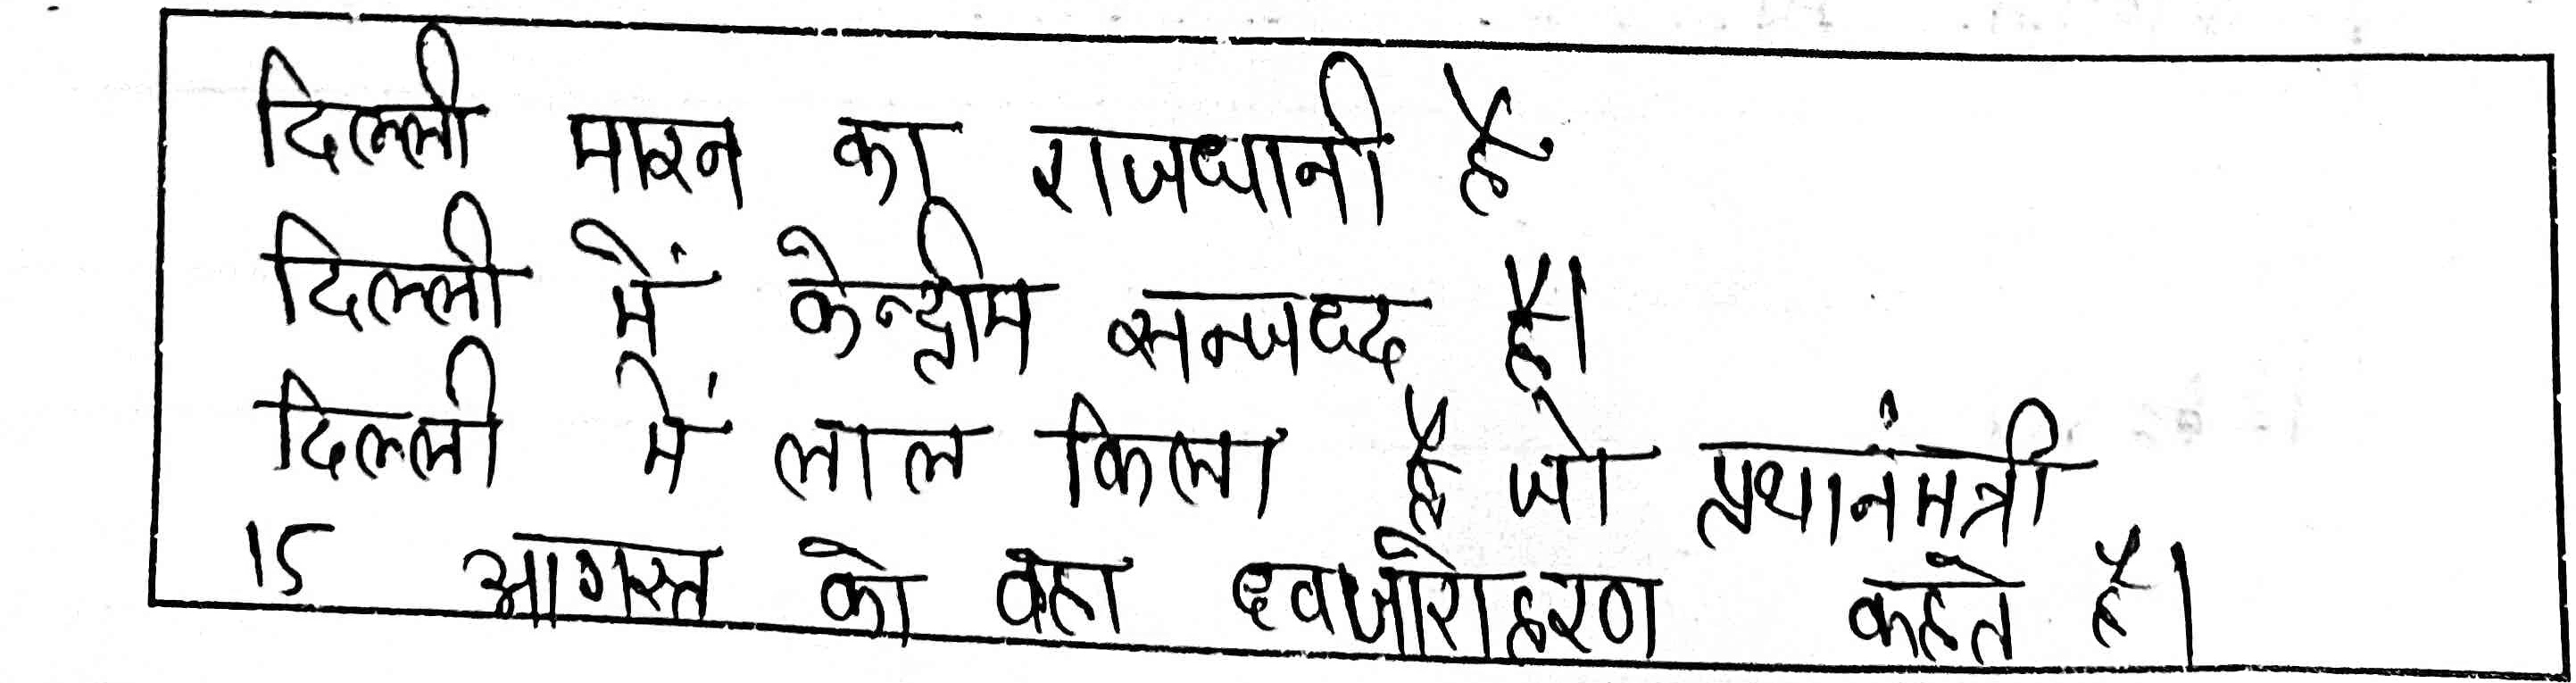 दिल्ली भारत का राजधानी है
दिल्ली में केन्द्रीय है।
दिल्ली में लाल किला है जो प्रधानंमत्री
15 आगस्त को वहा ध्वजोरोहरण कहते है।